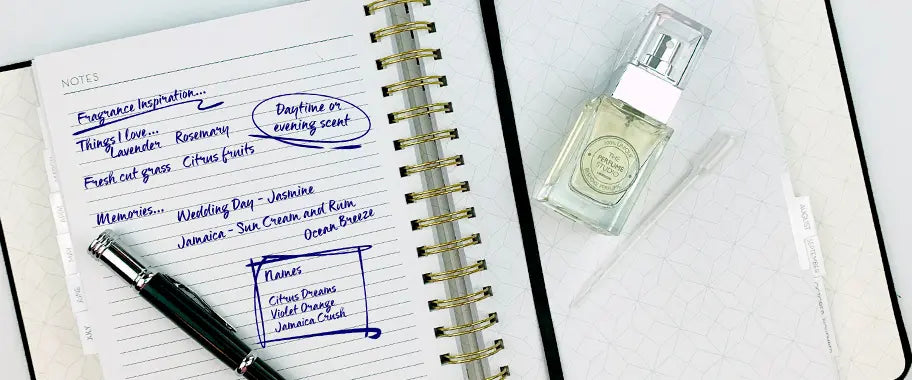 NOTES
Fragrance Inspiration...
Things I love...
Lavender Rosemary
Fresh cut grass Citrus fruits
Daytime or
evening scent
Memories... Wedding Day - Jasmine
Jamaica - Sun Cream and Rum
Ocean Breeze
Names
Citrus Dreams
Violet Orange
Jamaica Crush
THE
PERFUME
STUDIO
LONDON
JUNE
JULY
AUGUST
SEPTEMBER